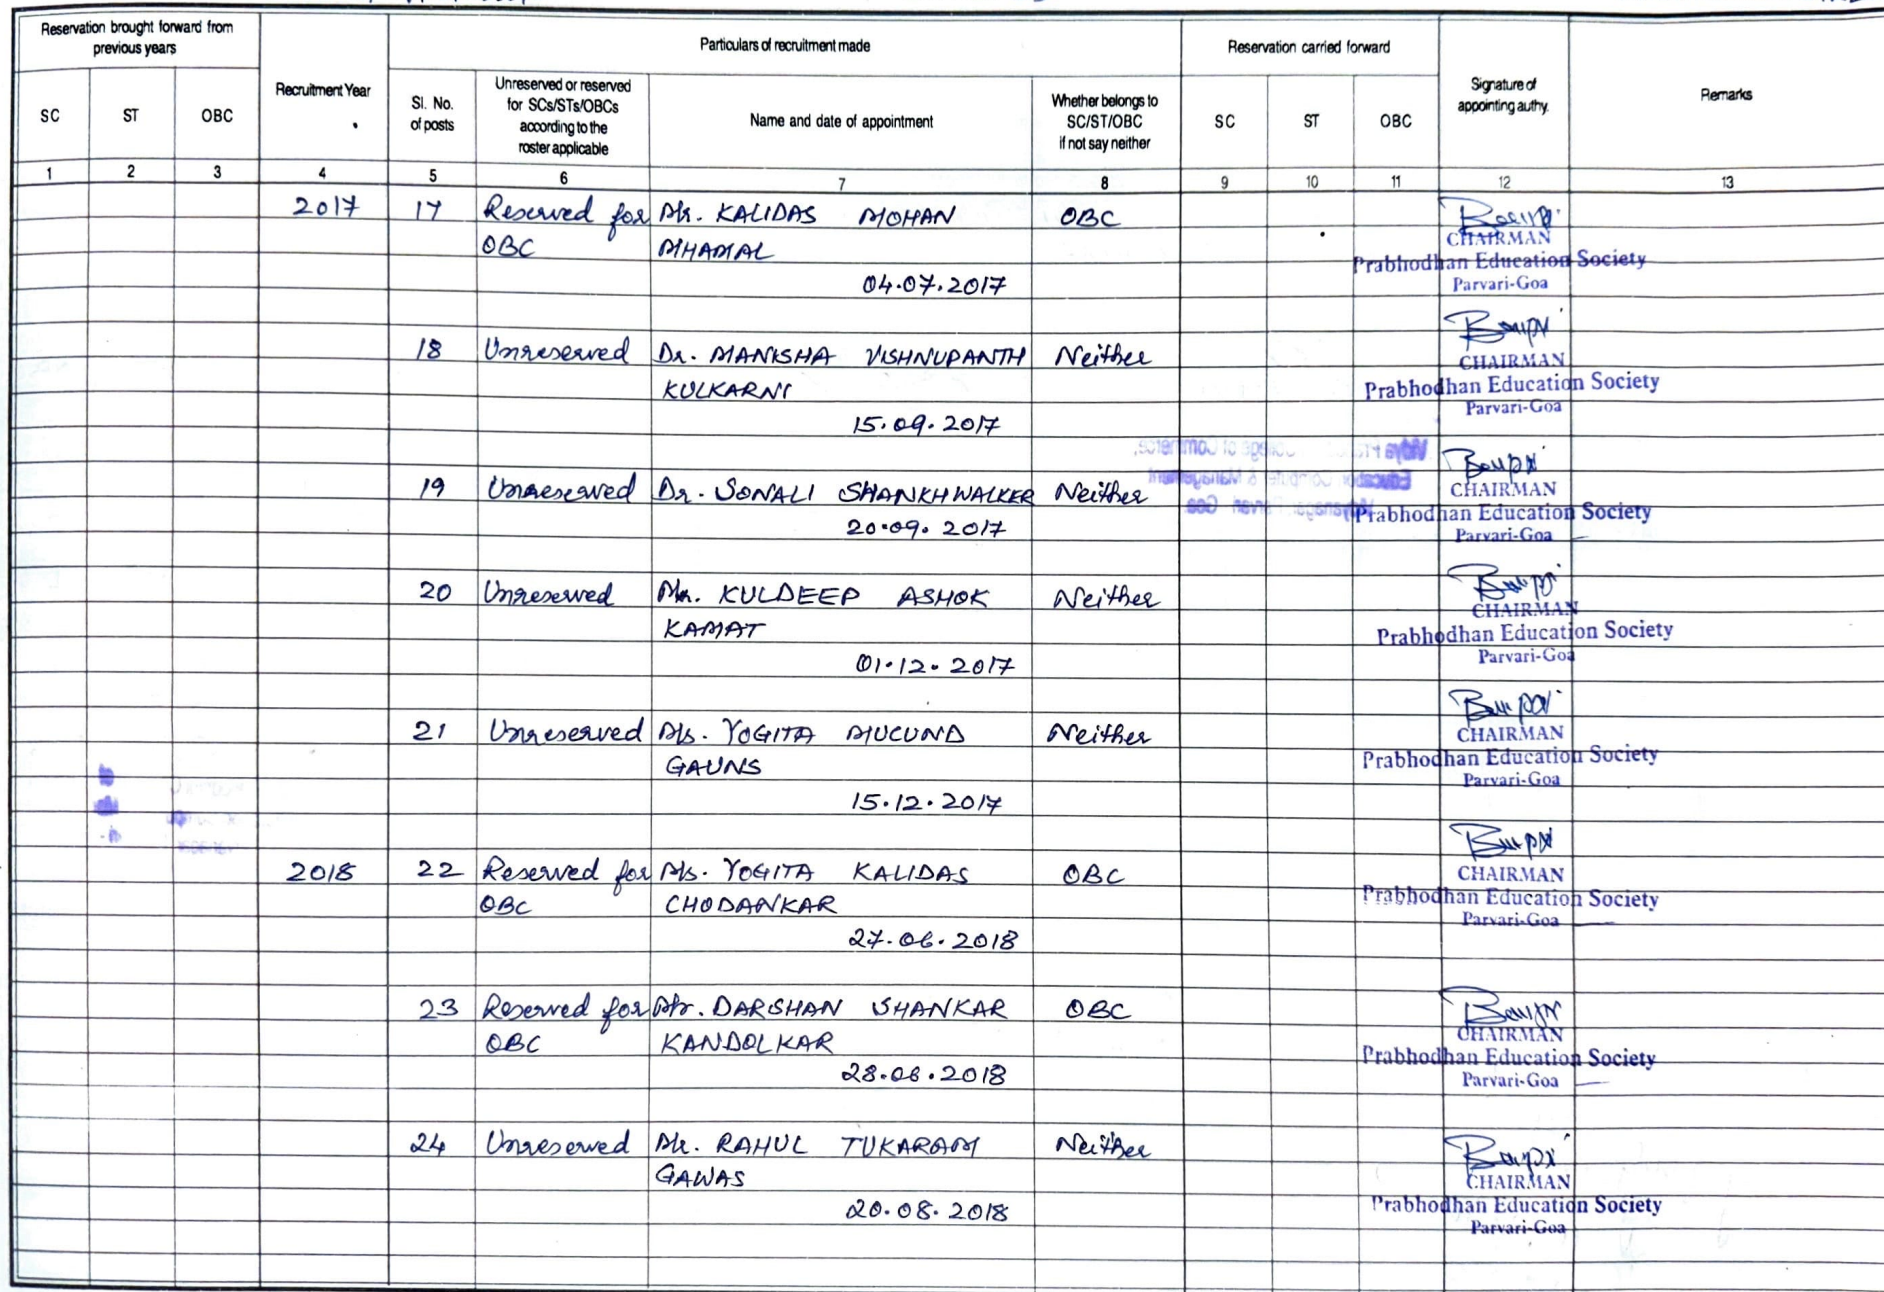 Reservation brought forward from
previous years
Recruitment Year
Particulars of recruitment made
Reservation carried forward
Signature of
appointing authy.
Remarks
SC ST OBC
Sl. No.
of posts
Unreserved or reserved
for SCs/STs/OBCs
according to the
roster applicable
Name and date of appointment
Whether belongs to
SC/ST/OBC
if not say neither
SC ST OBC
1 2 3 4 5 6 7 8 9 10 11 12 13
2017 17 Reserved for Mr. KALIDAS MOHAN OBC
OBC MHAMAL
04.07.2017
CHAIRMAN
Prabhodhan Education Society
Parvari-Goa
18 Unreserved Dr. MANISHA VISHNUPANTH Neither
KULKARNI
15.09.2017
CHAIRMAN
Prabhodhan Education Society
Parvari-Goa
19 Unreserved Dr. SONALI SHANKHWALKER Neither
20.09.2017
CHAIRMAN
Prabhodhan Education Society
Parvari-Goa
20 Unreserved Mr. KULDEEP ASHOK Neither
KAMAT
01.12.2017
CHAIRMAN
Prabhodhan Education Society
Parvari-Goa
21 Unreserved Ms. YOGITA MUCUND Neither
GAUNS
15.12.2017
CHAIRMAN
Prabhodhan Education Society
Parvari-Goa
2018 22 Reserved for Ms. YOGITA KALIDAS OBC
OBC CHODANKAR
27.06.2018
CHAIRMAN
Prabhodhan Education Society
Parvari-Goa
23 Reserved for Mr. DARSHAN SHANKAR OBC
OBC KANDOLKAR
28.06.2018
CHAIRMAN
Prabhodhan Education Society
Parvari-Goa
24 Unreserved Mr. RAHUL TUKARAM Neither
GAWAS
20.08.2018
CHAIRMAN
Prabhodhan Education Society
Parvari-Goa